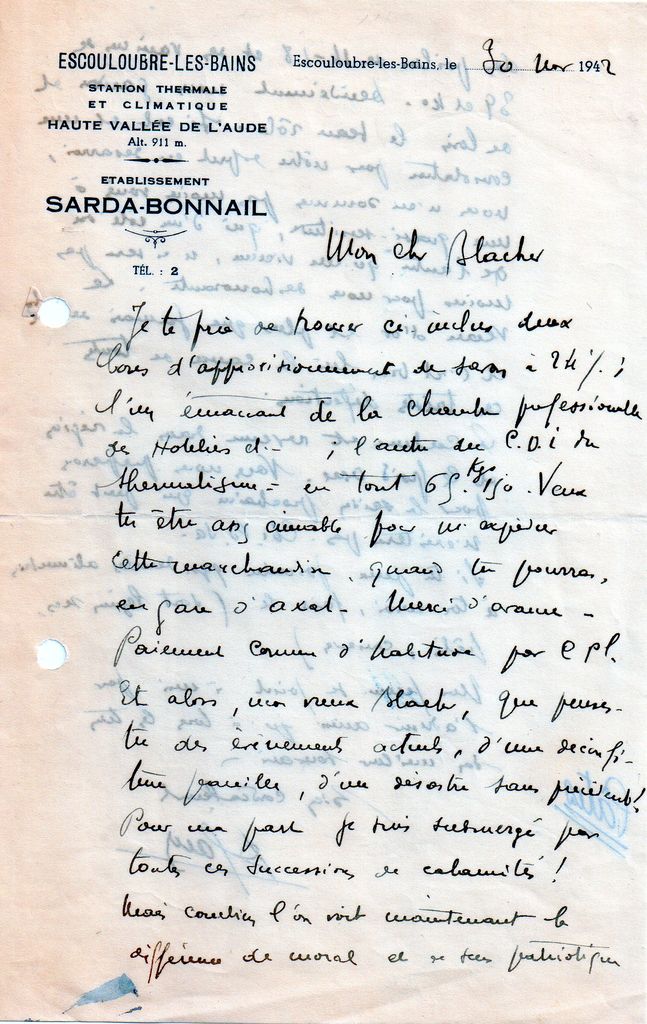 ESCOULOUBRE-LES-BAINS
STATION THERMALE
ET CLIMATIQUE
HAUTE VALLÉE DE L'AUDE
Alt. 911 m.
ETABLISSEMENT
SARDA-BONNAIL
TÉL. : 2
Escouloubre-les-Bains, le 30 Nov 1942
Mon cher Blacher
Je te prie de trouver ci-inclus deux
bons d'approvisionnement de savon à 24% ;
l'un émanant de la chambre professionnelle
des Hôteliers ; l'autre du C.O.I du
thermalisme = en tout 65.Kgs 150. Veux
tu être assez aimable pour m'expédier
cette marchandise, quand tu pourras,
en gare d'Axat - Merci d'avance -
Paiement comme d'habitude par
Et alors, mon vieux Blacher, que penses-
tu des évènements actuels, d'une déconfi-
ture pareille, d'un désastre sans précédent !
Pour ma part je suis submergé par
toutes ces successions de calamités !
Mais combien l'on voit maintenant la
différence de moral et de sens patriotique